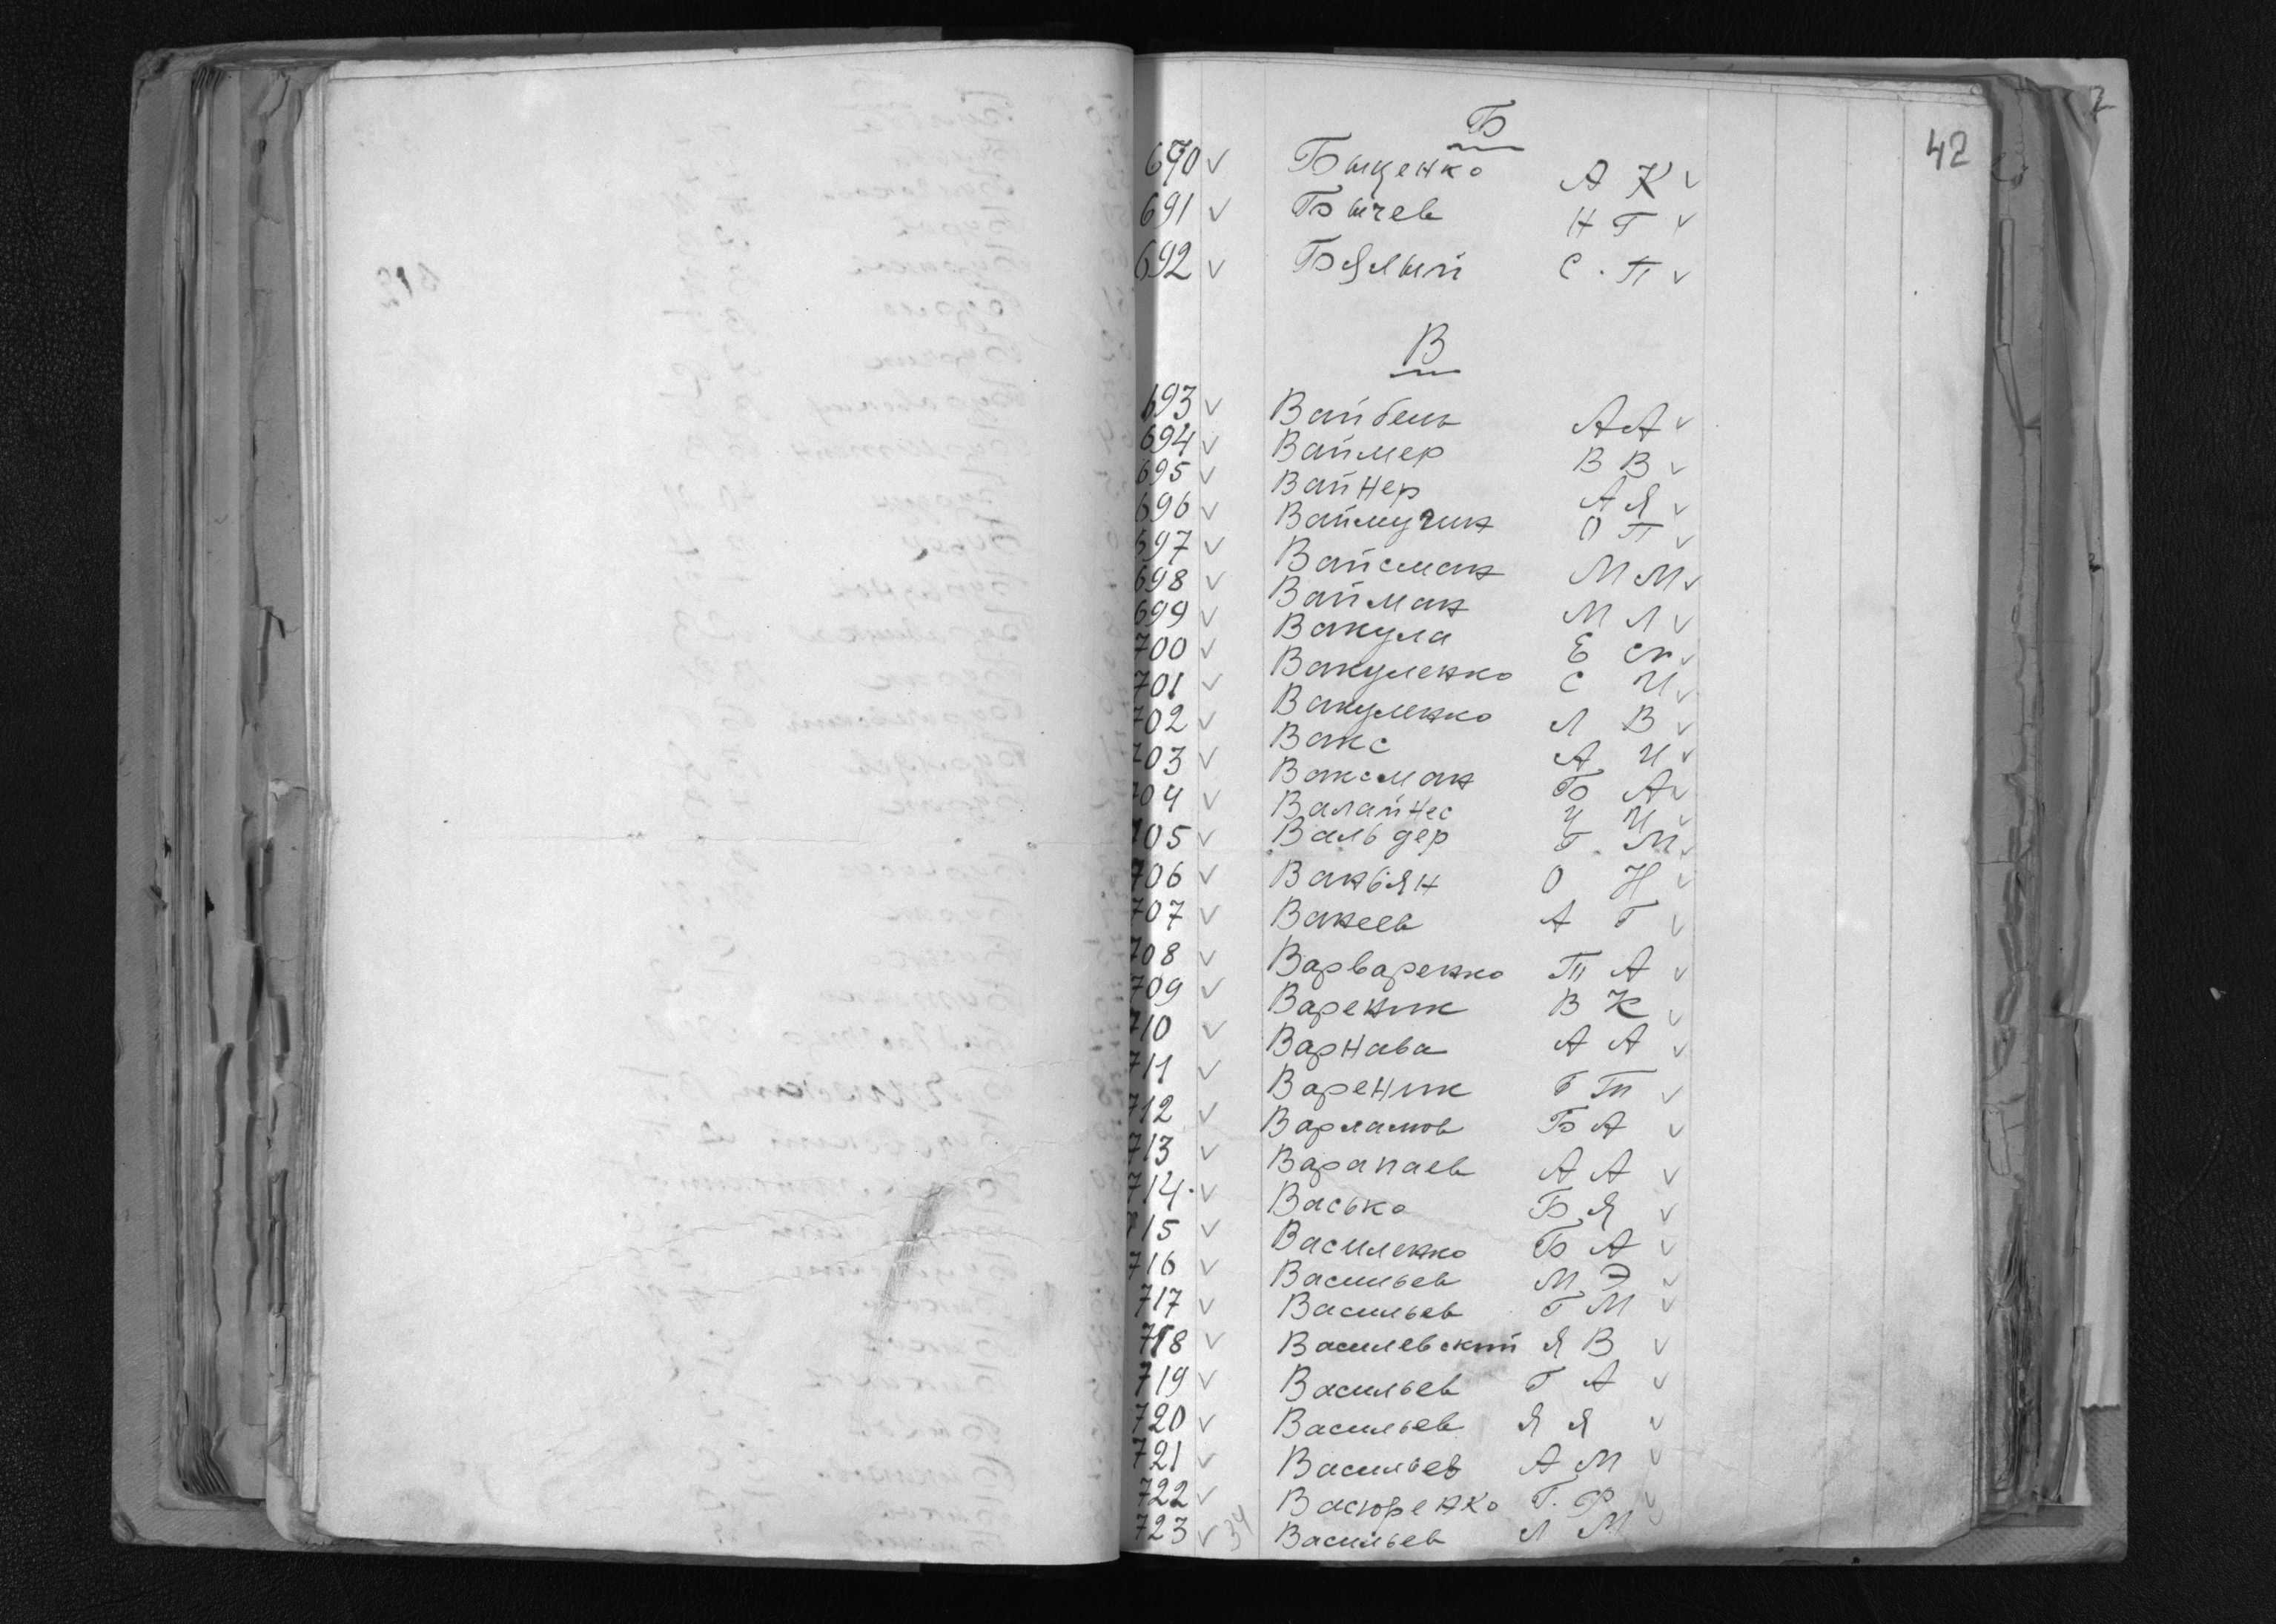 42
Б
690 v Быценко А К v
691 v Бычев Н Г v
692 v БЯлый С. П v
В
693 v Вайбель А А v
694 v Ваймер В В v
695 v Вайнер А Я v
696 v О П v
697 v Вайсман М М v
698 v Вайман М Л v
699 v Вакула Е v
700 v Вакуленко С И v
701 v Вакуленко Л В v
702 v Вакс А И v
703 v Ваксман Б А v
704 v Валайнес И И v
705 v Вальдер Г. М v
706 v Ванбян О Н v
707 v Ванеев А Г v
708 v Варваренко П А v
709 v Вареник В К v
710 v Варнава А А v
711 v Вареник Г П v
712 v Варламов Б А v
713 v Варапаев А А v
714. v Васько Б Я v
715 v Василенко Б А v
716 v Васильев М Э v
717 v Васильев Г М v
718 v Василевский Я В v
719 v Васильев Г А v
720 v Васильев Я Я v
721 v Васильев А М v
722 v Васюренко Г. Ф v
723 v 34 Васильев Л М v